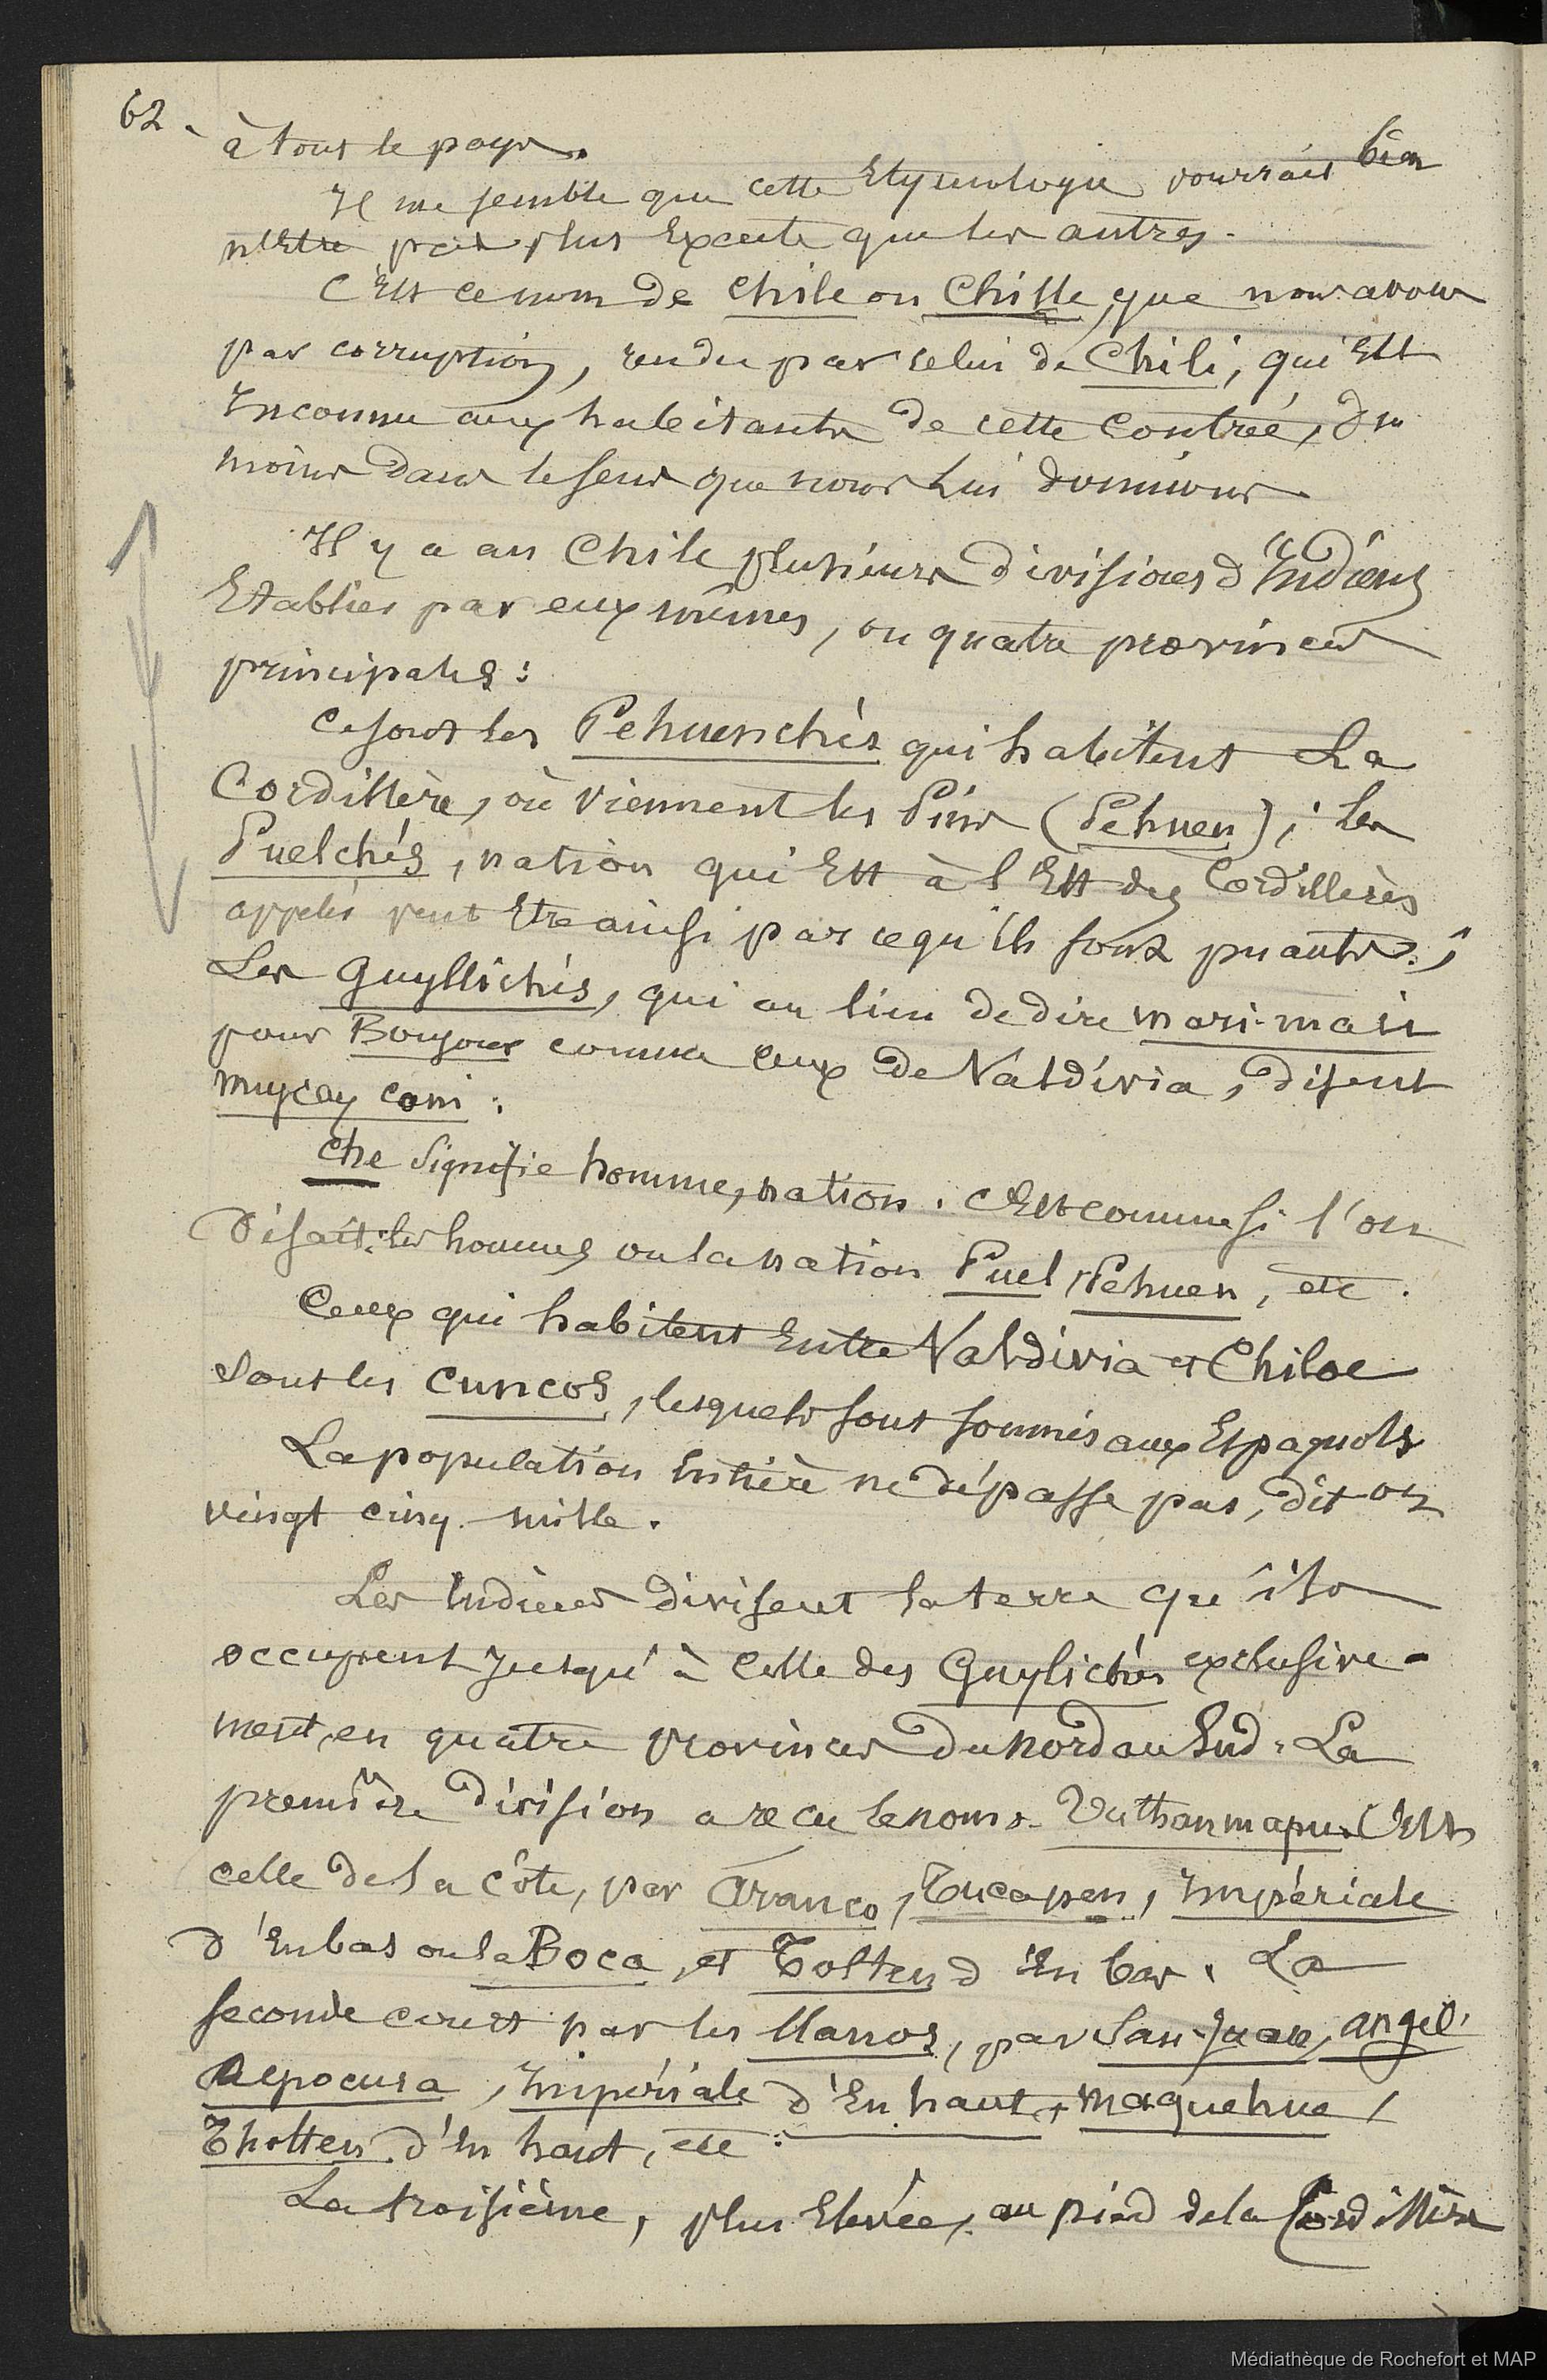 62.
à tout le pays.
Il me semble que cette Etymologie pourrait bien
n'Etre pas plus Exacte que les autres.
C'Est ce nom de Chile ou Chille, que nous avons
par corruption, rendu par celui de Chili, qui Est
Inconnu aux habitants de cette Contrée, du
moins dans le sens que nous Lui donnions.
Il y a au Chile plusieurs divisions d'Indiens
Etablies par eux mêmes, ou quatre provinces
principales :
Ce sont les Pehuenchés qui habitent La
Cordillère, où viennent les Pins (Pehuen) ; les
Puelchés, nation qui Est à l'Est des Cordillères
appelés peut Etre ainsi parce qu'ils sont puants ;
Les Guyllichés, qui au lieu de dire mari-mari
pour Bonjour comme ceux de Valdivia, disent
muycay comi.
Che signifie homme, nation. C'Est comme si l'on
disait : les hommes ou la nation Puel, Pehuen, etc.
Ceux qui habitent Entre Valdivia et Chiloe
sont les Cuncos, lesquels sont soumis aux Espagnols
La population Entière ne dépasse pas, dit on
vingt cinq mille.
Les Indiens divisent la terre qu'ils
occupent Jusqu'à Celle des Guylichés exclusive-
ment, en quatre provinces du nord au Sud. La
première division a reçu le nom. Vuthanmapu. C'Est
celle de la Côte, par Arauco, Tucapen, Impériale
d'En bas ou la Boca, et Tolten d'En bas. La
seconde court par les llanos, par San-Juan, angel,
Repocura, Impériale d'En haut, maquehua,
Tholten d'En haut, etc.
La troisième, plus Elevée, au pied de la Cordillère
Médiathèque de Rochefort et MAP